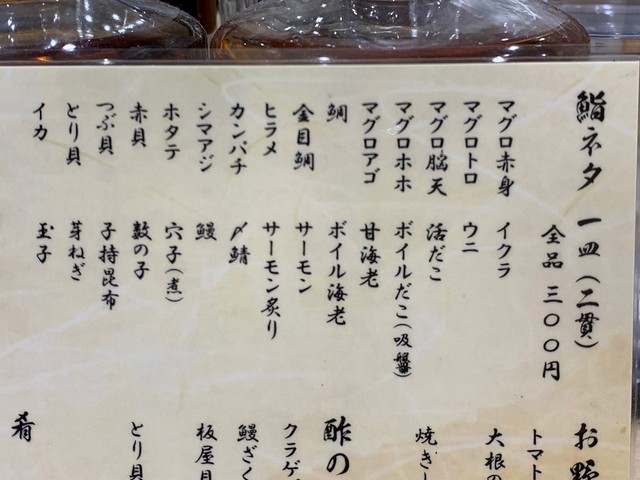 鮨ネタ 一皿（二貫）
全品 三〇〇円
マグロ赤身
マグロトロ
マグロ脳天
マグロホホ
マグロアゴ
鯛
金目鯛
ヒラメ
カンパチ
シマアジ
ホタテ
赤貝
つぶ貝
とり貝
イカ
イクラ
ウニ
活だこ
ボイルだこ（吸盤）
甘海老
ボイル海老
サーモン
サーモン炙り
〆鯖
鰻
穴子（煮）
数の子
子持昆布
芽ねぎ
玉子
お野
トマト
大根の
焼きし
酢の
クラゲ
鰻ざく
板屋貝
とり貝
肴